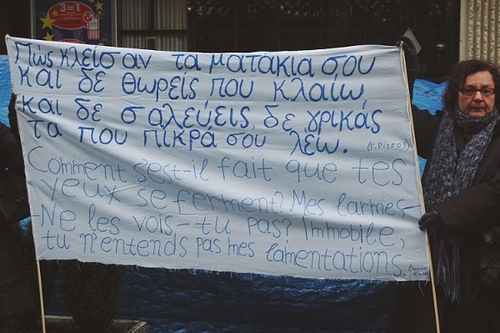 3=1
Πώς κλείσαν τα ματάκια σου
και δε θωρείς που κλαίω
και δε σαλεύεις, δε γρικάς
τα που πικρά σου λέω. (Γ. Ρίτσος)
Comment s'est-il fait que tes
yeux se ferment? Mes larmes-
-Ne les vois-tu pas? Immobile,
tu n'entends pas mes lamentations.